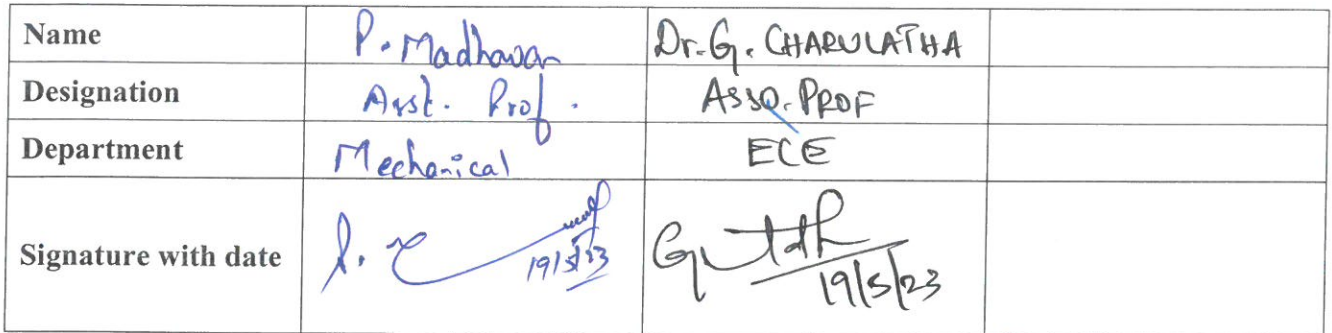 Name P. Madhavan Dr. G. CHARULATHA
Designation Asst. Prof. ASSO. PROF
Department Mechanical ECE
Signature with date 19/5/23 19/5/23